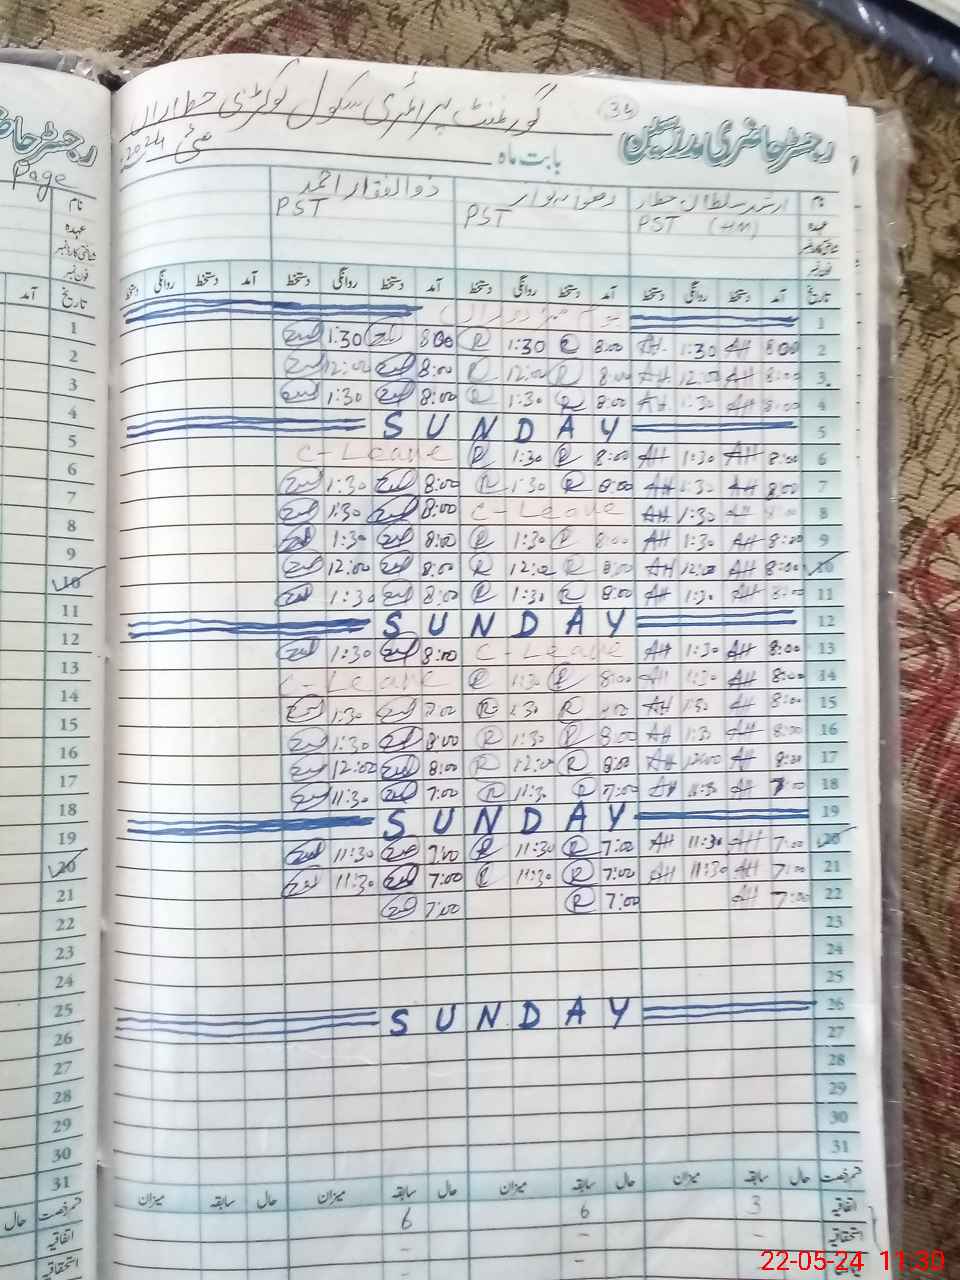 گورنمنٹ پرائمری سکول
34
رجسٹر حاضری مدرسین
بابت ماہ مئی 2024
نام ارشد سلطان PST (HM) ذوالفقار احمد PST
عہدہ PST
فون نمبر
تاریخ آمد دستخط روانگی دستخط آمد دستخط روانگی دستخط آمد دستخط روانگی دستخط آمد دستخط روانگی دستخط
1
2 8:00 AH 1:30 AH 8:00 R 1:30 R 8:00 1:30
3 8:00 AH 12:00 AH 8:00 R 12:00 R 8:00 12:00
4 8:00 AH 1:30 AH 8:00 R 1:30 R 8:00 1:30
5 SUNDAY
6 8:00 AH 1:30 AH 8:00 R 1:30 R C-Leave
7 8:00 AH 1:30 AH 8:00 R 1:30 R 8:00 1:30
8 AH 1:30 AH C-Leave 8:00 1:30
9 8:00 AH 1:30 AH 8:00 R 1:30 R 8:00 1:30
10 8:00 AH 12:00 AH 8:00 R 12:00 R 8:00 12:00
11 8:00 AH 1:30 AH 8:00 R 1:30 R 8:00 1:30
12 SUNDAY
13 8:00 AH 1:30 AH C-Leave 8:00 1:30
14 8:00 AH 1:30 AH 8:00 R 1:30 R C-Leave
15 8:00 AH 1:30 AH R 1:30 R 1:30
16 8:00 AH 1:30 AH 8:00 R 1:30 R 8:00 1:30
17 8:00 AH 12:00 AH 8:00 R 12:00 R 8:00 12:00
18 7:00 AH 11:30 AH 7:00 R 11:30 R 7:00 11:30
19 SUNDAY
20 7:00 AH 11:30 AH 7:00 R 11:30 R 7:00 11:30
21 7:00 AH 11:30 AH 7:00 R 11:30 R 7:00 11:30
22 7:00 AH 7:00 R 7:00
23
24
25
26 SUNDAY
27
28
29
30
31
قسم رخصت حال سابقہ میزان حال سابقہ میزان حال سابقہ میزان حال سابقہ میزان
اتفاقیہ 3 6 6
استحقاقیہ - - -
رجسٹر حاضری
Page
نام
عہدہ
فون نمبر
تاریخ آمد
1
2
3
4
5
6
7
8
9
10
11
12
13
14
15
16
17
18
19
20
21
22
23
24
25
26
27
28
29
30
31
قسم رخصت حال
اتفاقیہ
استحقاقیہ
22-05-24 11:30